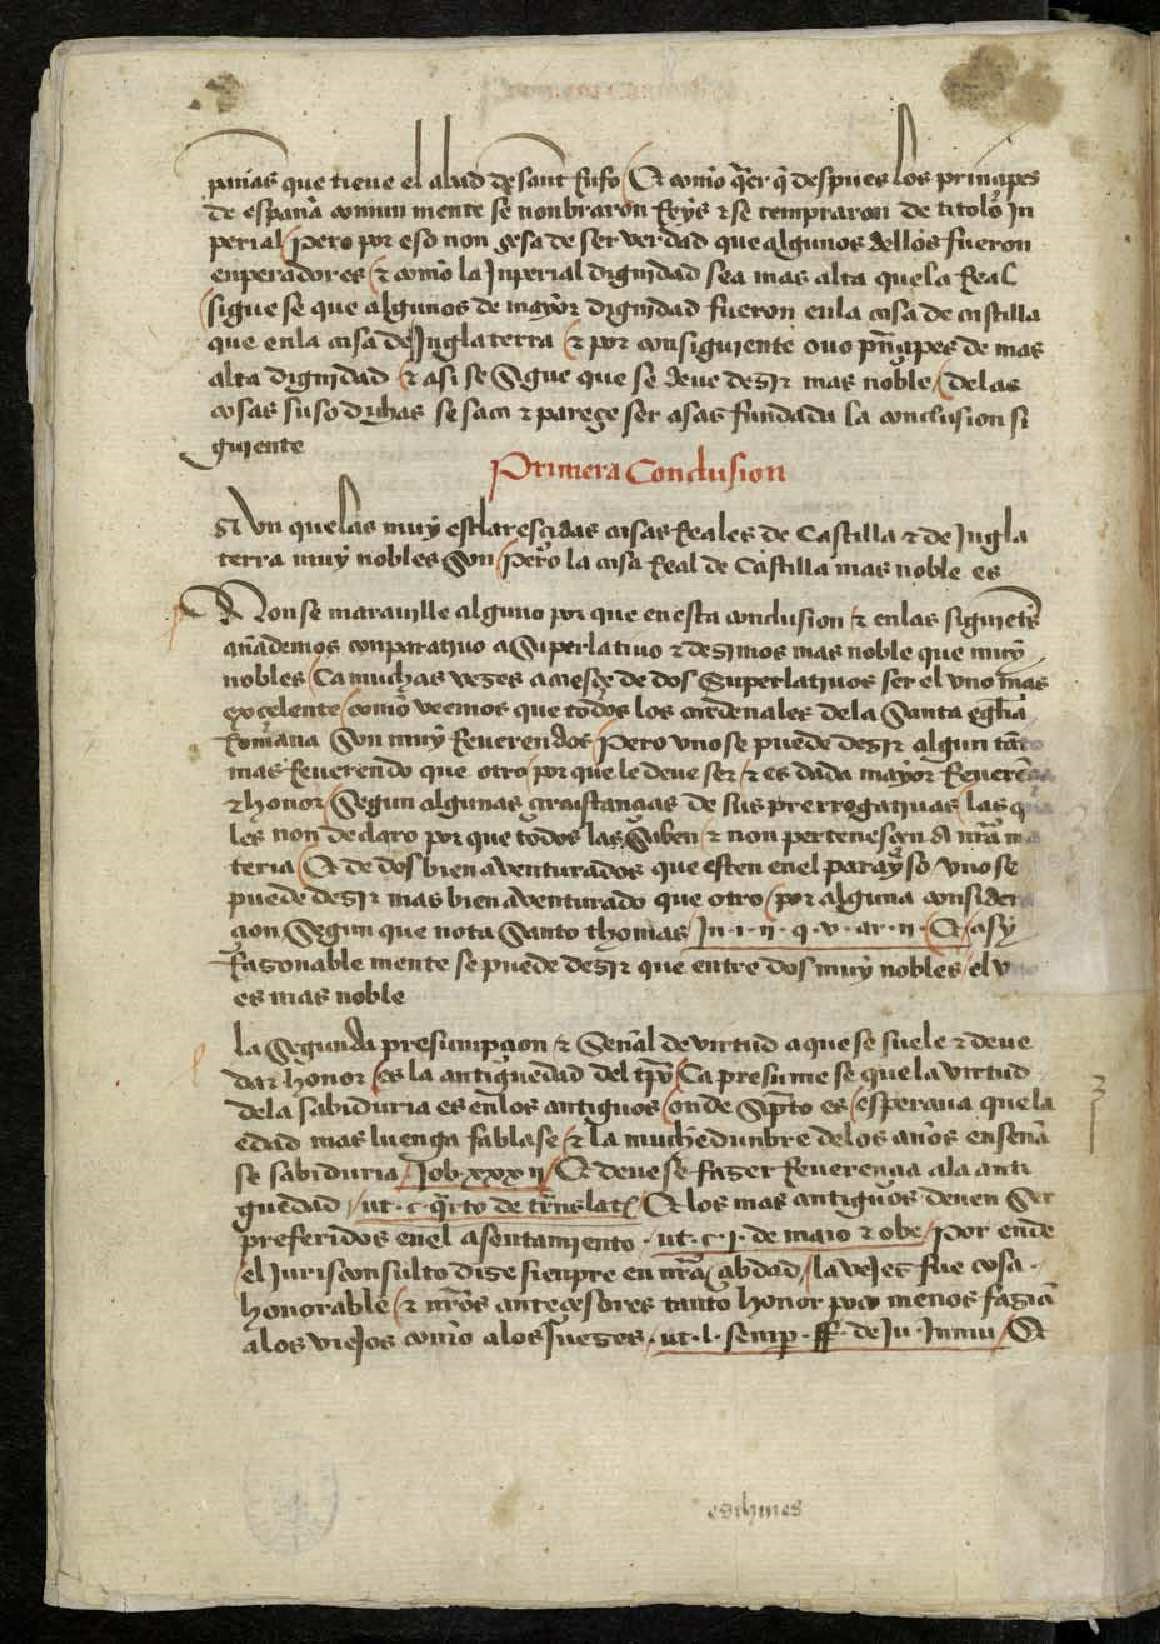 panias que tiene el abad de sant Rufo Et como q̃er q̃ despues los prinçipes
de españa comun mente se nonbraron Reyes & se tempraron de titolo In
perial pero por eso non çesa de ser verdad que algunos dellos fueron
enperadores & como la Inperial dignidad sea mas alta que la Real
sigue se que algunos de mayor dignidad fueron enla casa de castilla
que enla casa de Inglaterra & por consiguiente ouo pñçipes de mas
alta dignidad & asi se sigue que se deue desir mas noble delas
cosas suso dichas se saca & pareçe ser asas fundada la conclusion si
guiente
Primera Conclusion
Si vn que las muy esclaresçidas casas Reales de Castilla & de Ingla
terra muy nobles son pero la casa Real de Castilla mas noble es
Non se marauille alguno por que en esta conclusion & enlas siguiẽtes
añademos conparatiuo a superlatiuo & desimos mas noble que muy
nobles Ca muchas veses acaesçe de dos superlatiuos ser el vno mas
exçelente como veemos que todos los cardenales dela santa eglia
Romana son muy Reuerendos pero vno se puede desir algun tãto
mas Reuerendo que otro por que le deue ser & es dada mayor Reuerẽ
& honor segun algunas çircustançias de sus prerrogatiuas las q
les non declaro por que todos las saben & non pertenesçen a nr̃a ma
teria Et de dos bien aventurados que esten enel parayso vno se
puede desir mas bien aventurado que otro por alguna consider
çion segun que nota santo thomas In .i. ii. q. v. ar. ii. Et asy
Rasonable mente se puede desir que entre dos muy nobles el v
es mas noble
la segunda presumpçion & señal de virtud a que se suele & deue
dar honor es la antiguedad del tp̃o Ca presume se que la virtud
dela sabiduria es enlos antiguos onde sc̃pto es esperaua que la
edad mas luenga fablase & la muchedunbre delos años enseña
se sabiduria Job xxx ii Et deue se faser Reuerençia ala anti
guedad ut. c. q̃rto de trãslat̃ Et los mas antiguos deuen ser
preferidos enel asentamiento. ut. c. j. de maio & obe Por ende
el Jurisconsulto dise sienpre en nr̃a çibdad la vejes fue cosa.
honorable & nr̃os anteçesores tanto honor poco menos fasiã
alos viejos como alos Jueses. ut. l. semp̱. ff. de Ju. Inmu Et
eschines